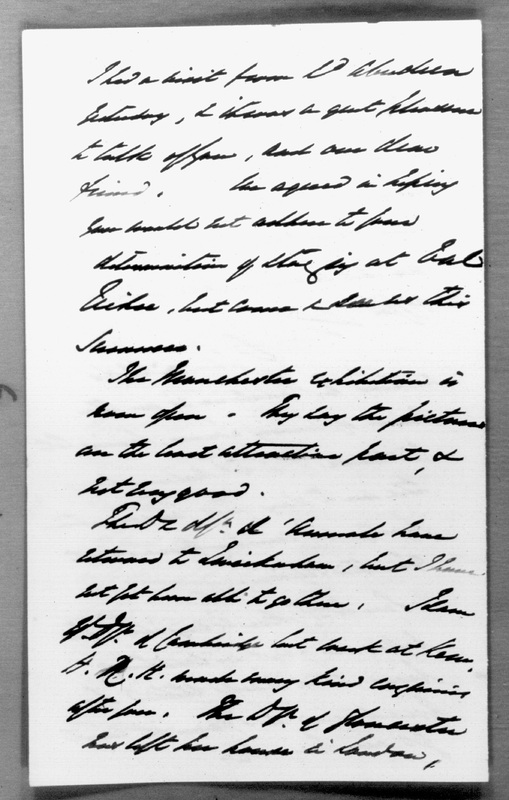 I had a visit from Ld Aberdeen
Yesterday, & it was a great pleasure
to talk of you, and our dear
friend. We agreed in hoping
you would not adhere to your
determination of staying at Val
Richer, but come & see us this
Summer.
The Manchester Exhibition is
now open. They say the pictures
are the least attractive part, &
not very good.
The D & Dss d'Aumale have
returned to Twickenham, but I have
not yet been able to go there. I saw
Ye Dss of Cambridge last week at Kew.
H. R. H. made many kind enquiries
after you. The Dss of Gloucester
has left her house in London,